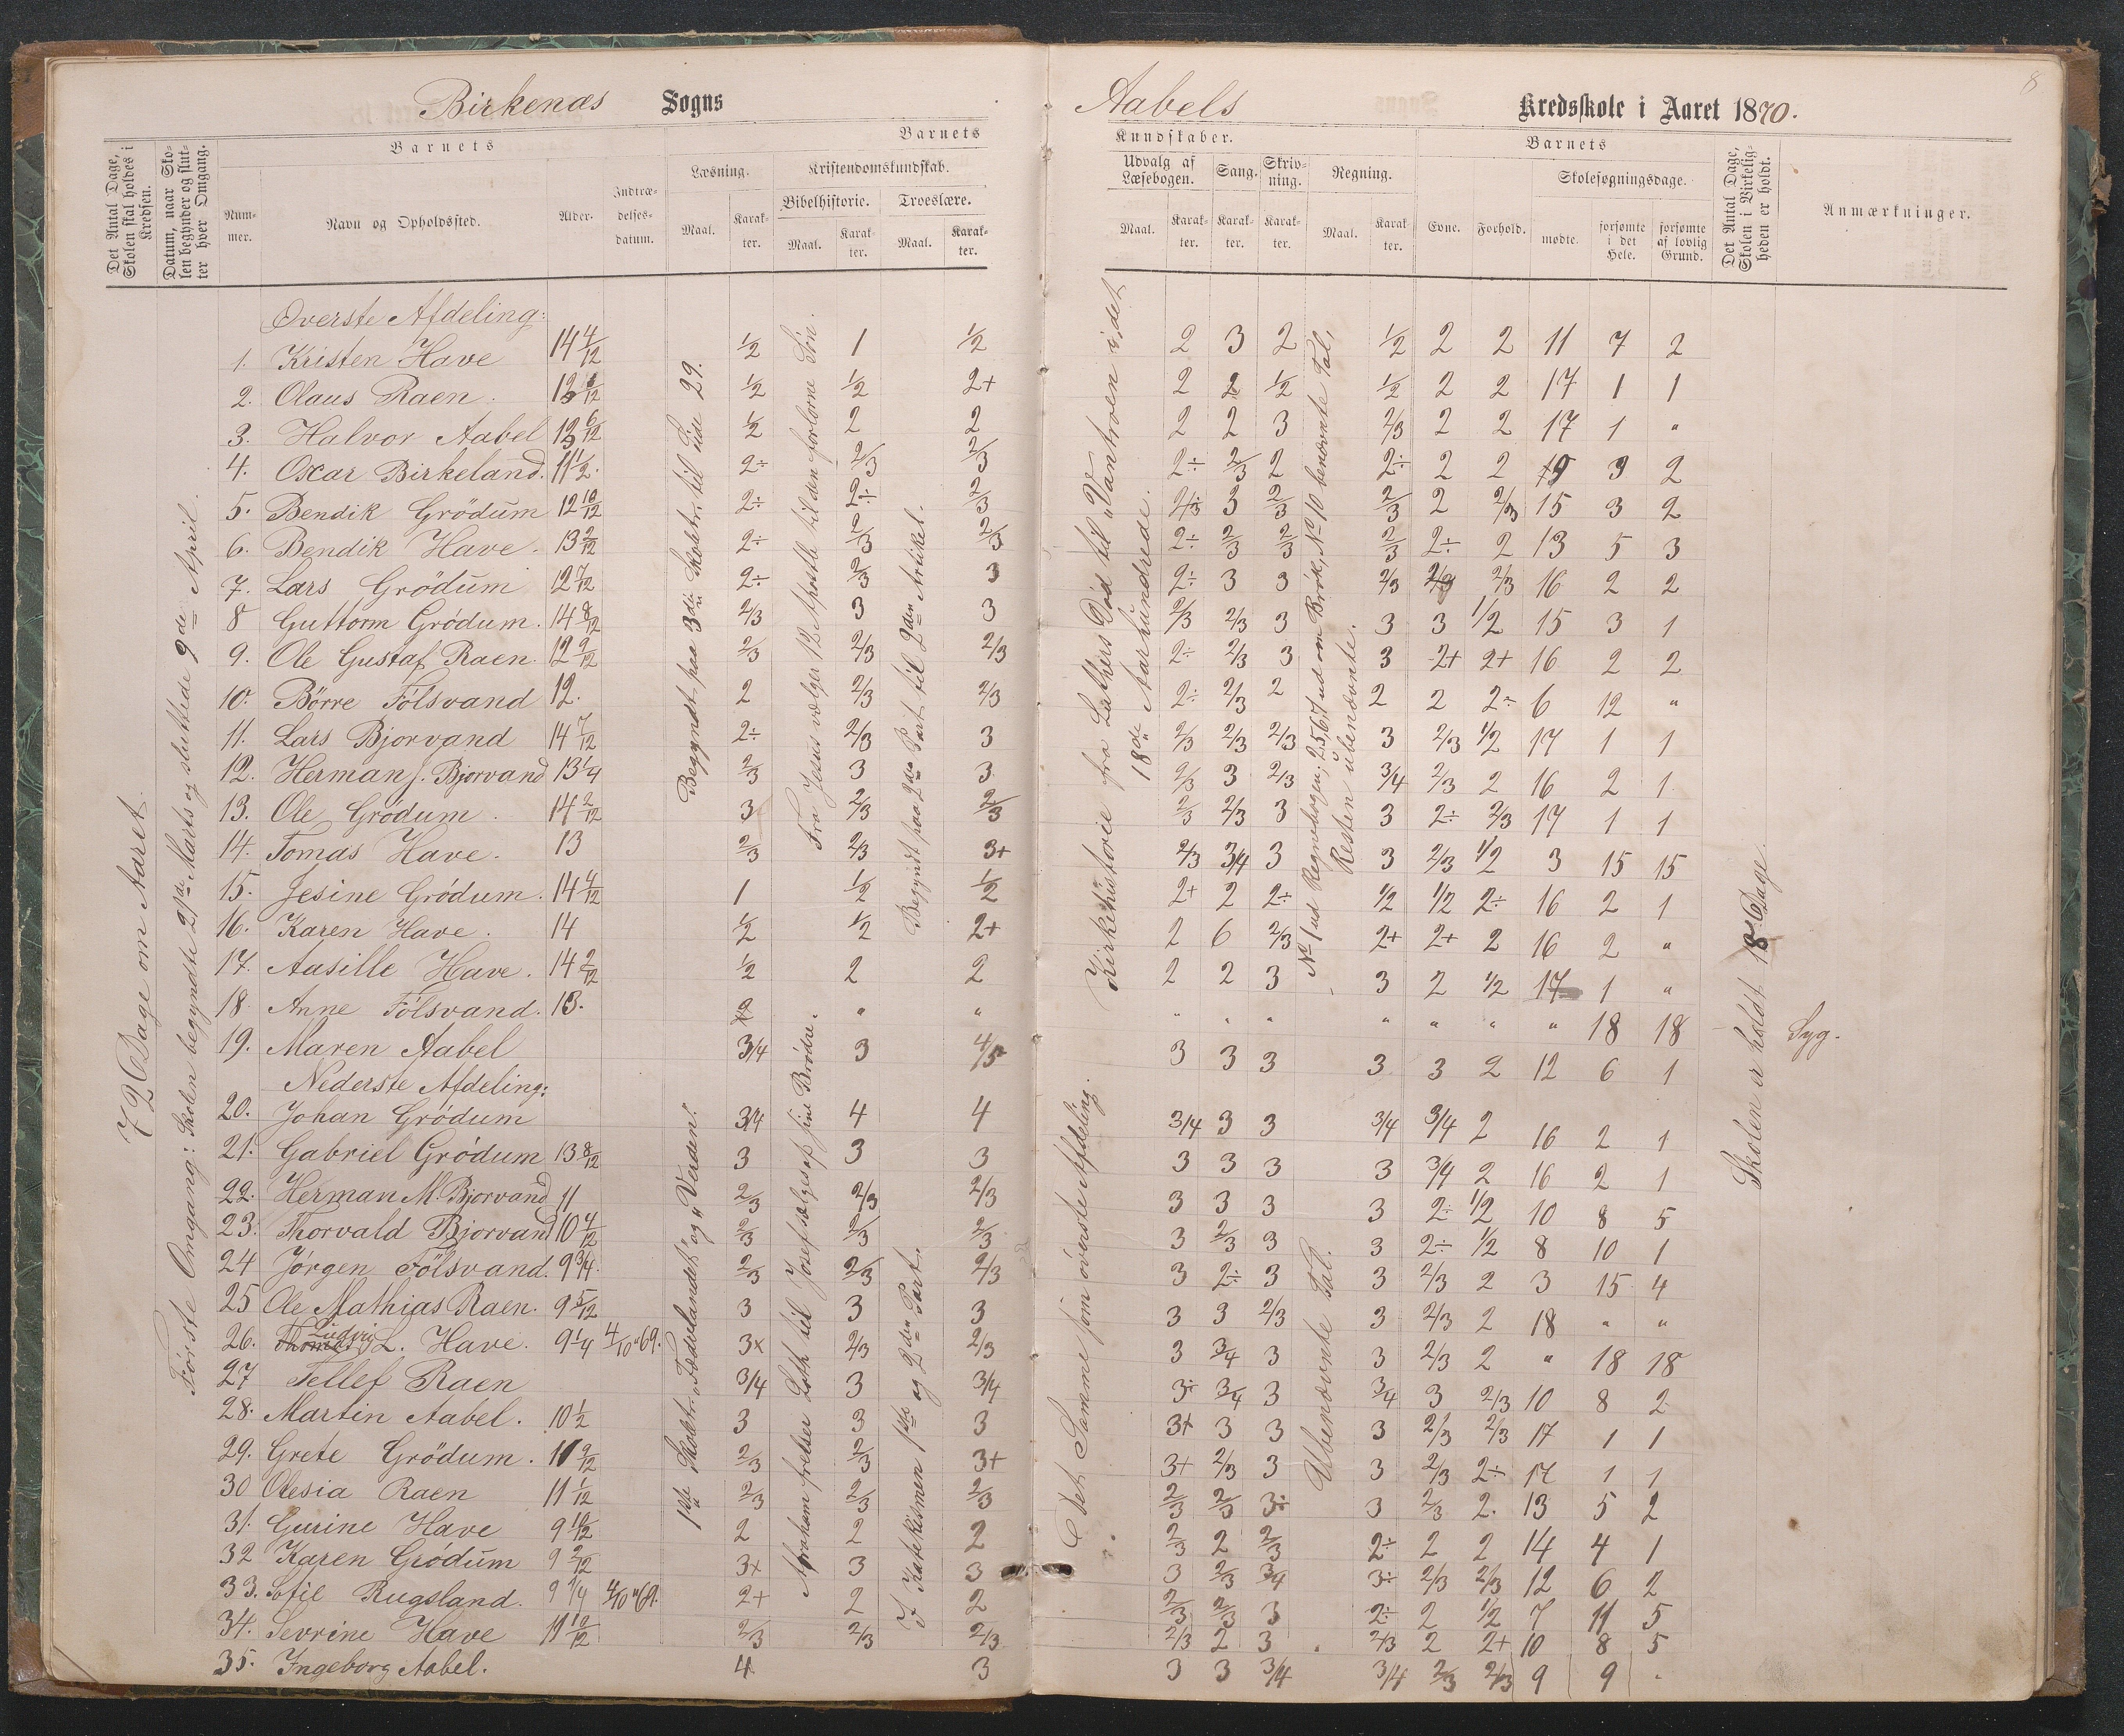 Birkenæs Sogns
Aabels Kredsskole i Aaret 1870.
8
Det Antal Dage, Skolen skal holdes i Kredsen.
Datum, naar Skolen begynder og slutter hver Omgang.
Barnets
Nummer.
Navn og Opholdssted.
Alder.
Indtrædelsesdatum.
Barnets
Læsning.
Maal.
Karakter.
Kristendomskundskab.
Bibelhistorie.
Maal.
Karakter.
Troeslære.
Maal.
Karakter.
Kundskaber.
Udvalg af Læsebogen.
Maal.
Karakter.
Sang.
Karakter.
Skrivning.
Karakter.
Regning.
Maal.
Karakter.
Barnets
Evne.
Forhold.
Skolesøgningsdage.
mødte.
forsømte i det Hele.
forsømte af lovlig Grund.
Det Antal Dage, Skolen i Virkeligheden er holdt.
Anmærkninger.
72 Dage om Aaret.
Første Omgang: Skolen begyndte 21de Marts og sluttede 9de April.
Begyndt paa 3die Skoletr. til Side 29.
Fra Jesus vælger 12 Apostle til den fortorne Søn.
Begyndt paa 2den Part til 2den Artikel.
Kirkehistorie fra Luthers Død til „Vantroen i det 18de Aarhundrede.
No 1 ud Regnebogen; 2567 ud om Brøk, No 10 benævnte Tal, Resten ubenævnte.
1ste Skoletr. „Fædrelandet" og „Verden".
Abraham frelser Loth til Josef sælges af sine Brødre.
I Katekismen 1ste og 2den Part.
Det Samme som øverste Afdeling.
Ubenævnte Tal.
Skolen er holdt 18 Dage.
Øverste Afdeling:
1. Kristen Have 14 4/12 1/2 1 1/2 2 3 2 1/2 2 2 11 7 2
2. Olaus Raen. 1/2 1/2 2+ 2 2 1/2 1/2 2 2 17 1 1
3. Halvor Aabel 1/2 2 2 2 2 3 2/3 2 2 17 1 "
4. Oscar Birkeland. 11 1/2. 2÷ 2/3 2/3 2÷ 2/3 2 2÷ 2 2 3 2
5. Bendik Grödum 12 10/12 2÷ 2÷ 2/3 3 2/3 2/3 2 2/3 15 3 2
6. Bendik Have. 13 2/12 2÷ 2/3 2/3 2÷ 2/3 2/3 2/3 2÷ 2 13 5 3
7. Lars Grödum 12 7/12 2÷ 2/3 3 2÷ 3 3 2/3 2/3 16 2 2
8 Guttorm Grödum. 14 8/12 2/3 3 3 2/3 2/3 3 3 3 1/2 15 3 1
9. Ole Gustaf Raen. 12 9/12 2/3 2/3 2/3 2÷ 2/3 3 3 2+ 2+ 16 2 2
10. Börre Fölsvand 12. 2 2/3 2/3 2÷ 2/3 2 2 2 2÷ 6 12 "
11. Lars Bjorvand 14 7/12 2÷ 2/3 3 2/3 2/3 2/3 3 2/3 1/2 17 1 1
12. Herman J. Bjorvand 13 1/4 2/3 3 3 2/3 3 2/3 3/4 2/3 2 16 2 1
13. Ole Grödum. 14 2/12 3 2/3 2/3 2/3 2/3 3 3 2÷ 2/3 17 1 1
14. Tomas Have. 13 2/3 2/3 3+ 2/3 3/4 3 3 2/3 1/2 3 15 15
15. Jesine Grödum. 14 4/12 1 1/2 1/2 2+ 2 2÷ 1/2 1/2 2÷ 16 2 1
16. Karen Have. 14 1/2 1/2 2+ 2 6 2/3 2+ 2+ 2 16 2 "
17. Aasille Have. 14 2/12 1/2 2 2 2 2 3 3 2 1/2 17 1 "
18. Anne Fölsvand. 13. " " " " " " " " " 18 18 Syg.
19. Maren Aabel 3/4 3 4/5 3 3 3 3 3 2 12 6 1
Nederste Afdeling:
20. Johan Grödum 3/4 4 4 3/4 3 3 3/4 3/4 2 16 2 1
21. Gabriel Grödum 13 8/12 3 3 3 3 3 3 3 3/4 2 16 2 1
22. Herman M. Bjorvand 11 2/3 2/3 2/3 3 3 3 3 2÷ 1/2 10 8 5
23. Thorvald Bjorvand 10 4/12 2/3 2/3 2/3 3 2/3 3 3 2÷ 1/2 8 10 1
24 Jørgen Fölsvand. 9 3/4. 2/3 2/3 2/3 3 2÷ 3 3 2/3 2 3 15 4
25 Ole Mathias Raen. 9 5/12 3 3 3 3 3 2/3 3 2/3 2 18 " "
26. Ludvig L. Have. 9 1/4 4/10 "69. 3x 2/3 2/3 3 3/4 3 3 2/3 2 " 18 18
27 Tellef Raen 3/4 3 3/4 3÷ 3/4 3 3/4 3 2/3 10 8 2
28. Martin Aabel. 10 1/2 3 3 3 3+ 3 3 3 2/3 2/3 17 1 1
29. Grete Grödum. 2/3 2/3 3+ 3+ 2/3 3 3 2/3 2÷ 17 1 1
30 Olesia Raen 11 1/12 2/3 2/3 2/3 2/3 2/3 3÷ 3 2/3 2. 13 5 2
31. Gurine Have 9 10/12 2 2 2 2/3 2 2/3 2÷ 2 2 14 4 1
32 Karen Grödum 9 2/12 3x 3 3 3 2/3 3/4 3÷ 2/3 2/3 12 6 2
33. Sofie Rugsland. 9 1/4 4/10 "69. 2+ 2 2 2/3 2/3 3 2÷ 2 1/2 7 11 5
34. Sevrine Have 11 10/12 2/3 2/3 2/3 2/3 2 3 2/3 2 2+ 10 8 5
35. Ingeborg Aabel. 4 3 3 3 3/4 3/4 2/3 2/3 9 9 "